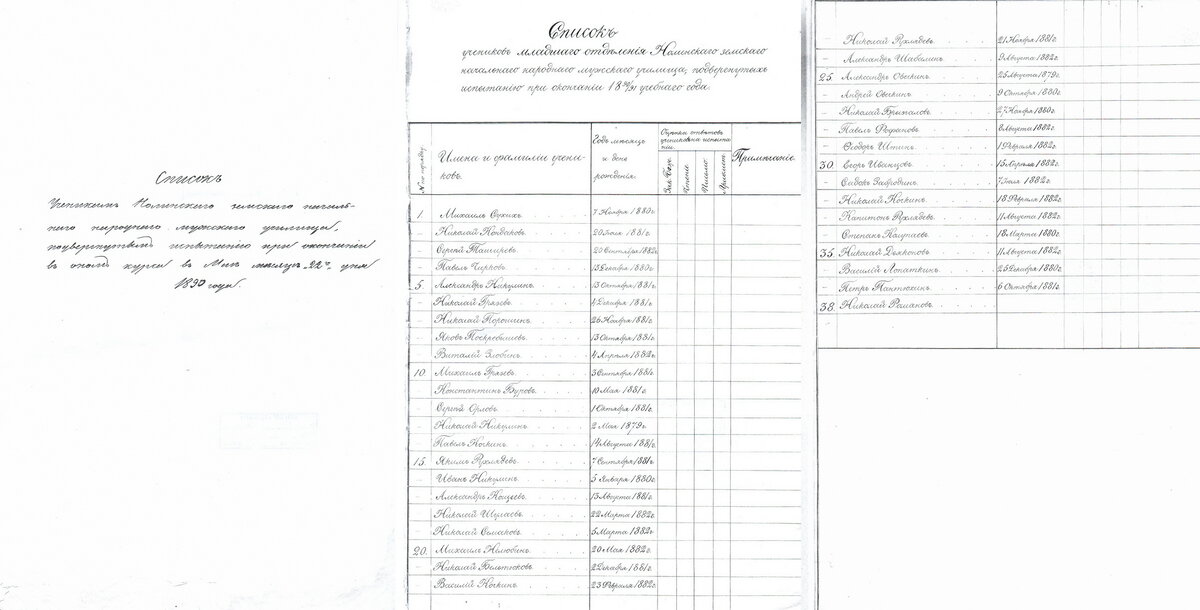 Списокъ
Ученикамъ Нолинскаго земскаго началь-
наго народнаго мужскаго училища,
подвергнутымъ испытанію при окончаніи
въ ономъ курса въ Маѣ мѣсяцѣ 22го дня
1890 года.
Списокъ
учениковъ младшаго отдѣленія Нолинскаго земскаго
начальнаго народнаго мужскаго училища, подвергнутыхъ
испытанію при окончаніи 1890/91 учебнаго года.
№ по порядку.
Имена и фамиліи учени-
ковъ.
Годъ мѣсяцъ
и день
рожденія.
Оцѣнки отвѣтовъ
учениковъ на испыта
ніи.
Зак. Бож.
Чтеніе.
Письмо.
Ариѳмет.
Примѣчаніе.
1. Михаилъ Сухихъ 7 Ноября 1880 г.
– Николай Кондаковъ 20 Іюля 1881 г.
– Сергѣй Ташировъ 20 Сентября 1882 г.
– Павелъ Чирковъ 13 Декабря 1880 г.
5. Александръ Никулинъ 13 Октября 1881 г.
– Николай Грязевъ 4 Декабря 1881 г.
– Николай Порошинъ 26 Ноября 1881 г.
– Яковъ Поскребышевъ 13 Октября 1881 г.
– Виталій Злобинъ 4 Апрѣля 1882 г.
10. Михаилъ Грязевъ 3 Сентября 1881 г.
– Константинъ Буровъ 10 Мая 1881 г.
– Сергѣй Орловъ 1 Октября 1881 г.
– Николай Никулинъ 2 Мая 1879 г.
– Павелъ Ногинъ 14 Августа 1881 г.
15. Якимъ Рухлядевъ 7 Сентября 1881 г.
– Иванъ Никулинъ 5 Января 1880 г.
– Александръ Кощеевъ 13 Августа 1881 г.
– Николай Шулаевъ 22 Марта 1882 г.
– Николай Семаковъ 5 Марта 1882 г.
20. Михаилъ Нелюбинъ 20 Мая 1882 г.
– Николай Бельтюковъ 2 Декабря 1881 г.
– Василій Ногинъ 23 Февраля 1882 г.
– Николай Рухлядевъ 21 Ноября 1881 г.
– Александръ Шабалинъ 9 Августа 1882 г.
25. Александръ Овскинъ 25 Августа 1879 г.
– Андрей Овскинъ 9 Октября 1880 г.
– Николай Брызгаловъ 27 Ноября 1880 г.
– Павелъ Фофановъ 8 Августа 1882 г.
– Ѳеодоръ Штинъ 1 Февраля 1882 г.
30. Егоръ Иванцовъ 15 Апрѣля 1882 г.
– Садокъ Заворохинъ 7 Іюля 1882 г.
– Николай Ногинъ 18 Февраля 1882 г.
– Капитонъ Рухлядевъ 11 Августа 1882 г.
– Степанъ Кашуневъ 18 Марта 1880 г.
35. Николай Дьяконовъ 11 Августа 1882 г.
– Василій Лопаткинъ 25 Декабря 1880 г.
– Петръ Пантюхинъ 6 Октября 1881 г.
38. Николай Романовъ